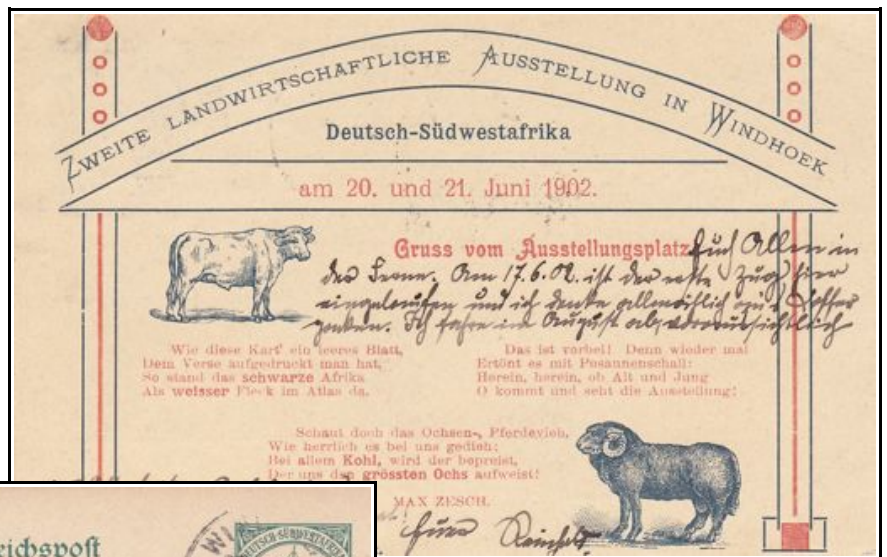 ZWEITE LANDWIRTSCHAFTLICHE AUSSTELLUNG IN WINDHOEK
Deutsch-Südwestafrika
am 20. und 21. Juni 1902.
Gruss vom Ausstellungsplatz
Euch Allen in
der Ferne. Am 17.6.02. ist der erste Zug hier
eingelaufen und ich denke allmählich ans
Ich fahre im August ab voraussichtlich
Wie diese Kart' ein leeres Blatt,
Dem Verse aufgedruckt man hat,
So stand das schwarze Afrika
Als weisser Fleck im Atlas da.
Das ist vorbei! Denn wieder mal
Ertönt es mit Posaunenschall:
Herein, herein, ob Alt und Jung
O kommt und seht die Ausstellung!
Schaut doch das Ochsen-, Pferdevieh,
Wie herrlich es bei uns gedieh;
Bei allem Kohl, wird der bepreist,
Der uns den grössten Ochs aufweist!
MAX ZESCH.
Euer
eichspost
WIN
DEUTSCH-SÜDWESTAFRIKA